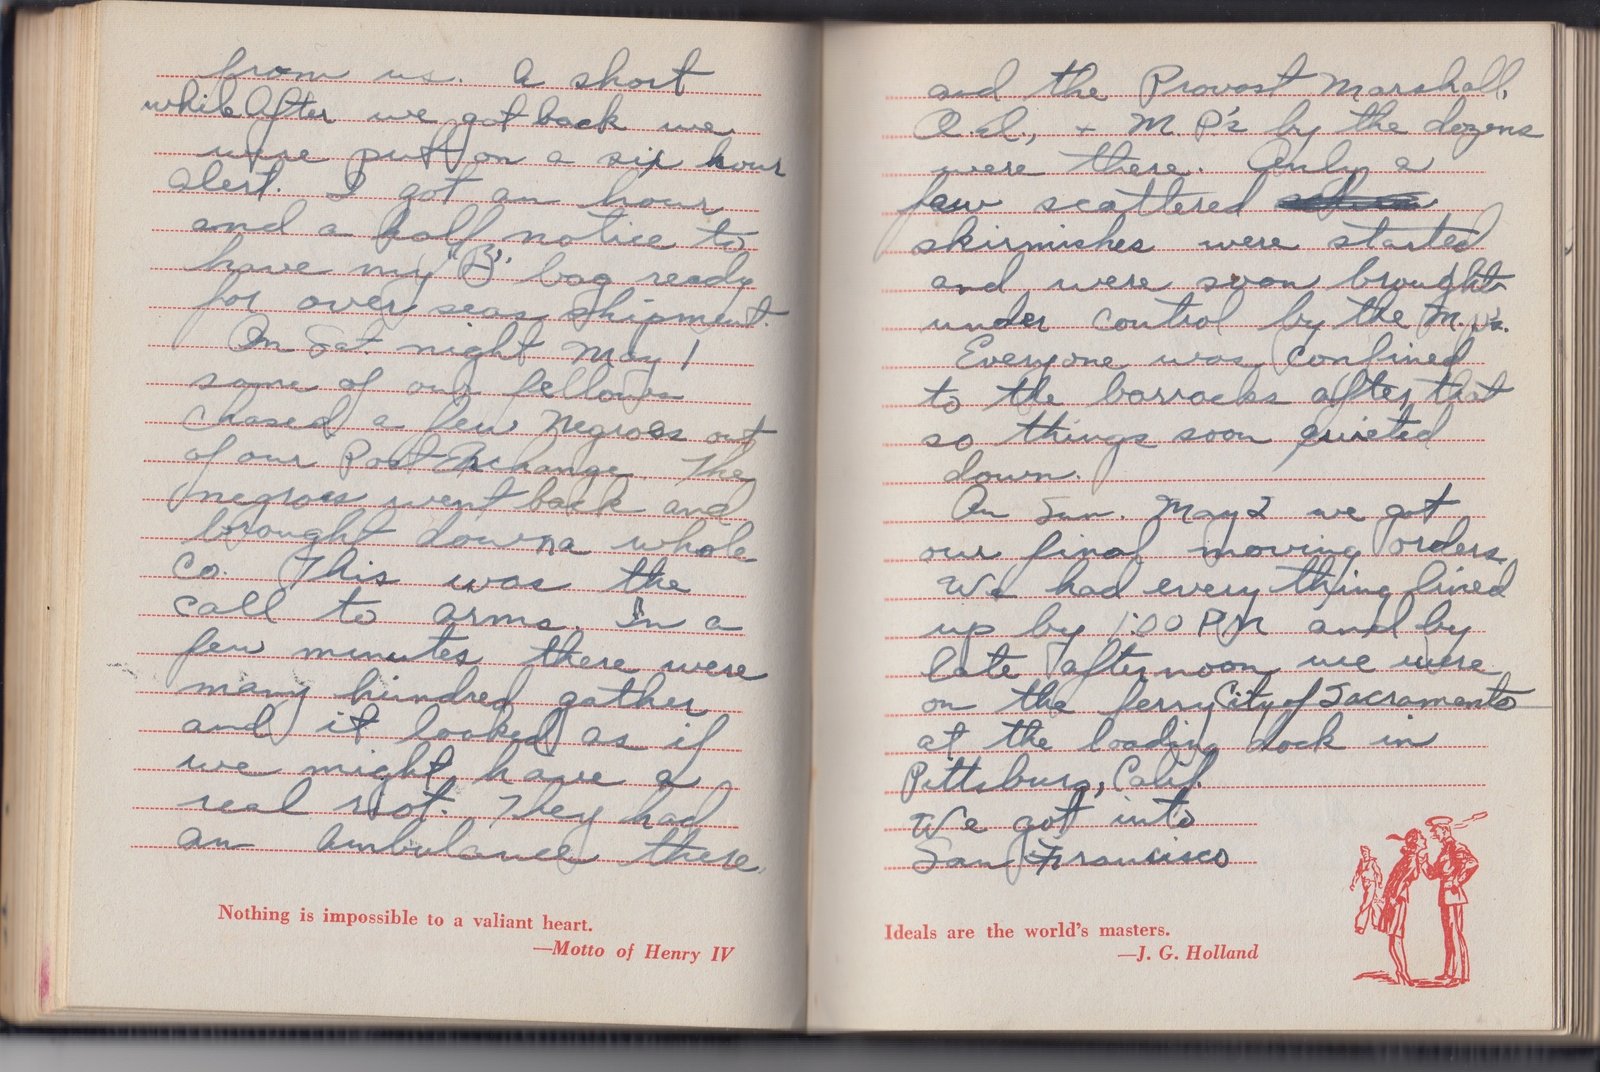 from us. A short
while After we got back we
were put on a six hour
alert. I got an hour
and a half notice to
have my "B" bag ready
for over seas shipment.
On Sat. night May 1
some of our fellows
chased a few Negroes out
of our Post Exchange. The
negroes went back and
brought down a whole
Co. This was the
call to arms. In a
few minutes there were
many hundred gather
and it looked as if
we might have a
real riot. They had
an ambulance there
Nothing is impossible to a valiant heart.
—Motto of Henry IV
and the Provost Marshall,
Col., + M.P's by the dozens
were there. Only a
few scattered
skirmishes were started
and were soon brought
under control by the M.P's.
Everyone was confined
to the barracks after that
so things soon quieted
down.
On Sun. May 2 we got
our final moving orders
We had every thing lined
up by 1:00 PM and by
late afternoon we were
on the ferry City of Sacramento
at the loading dock in
Pittsburg, Calif.
We got into
San Francisco
Ideals are the world's masters.
—J. G. Holland